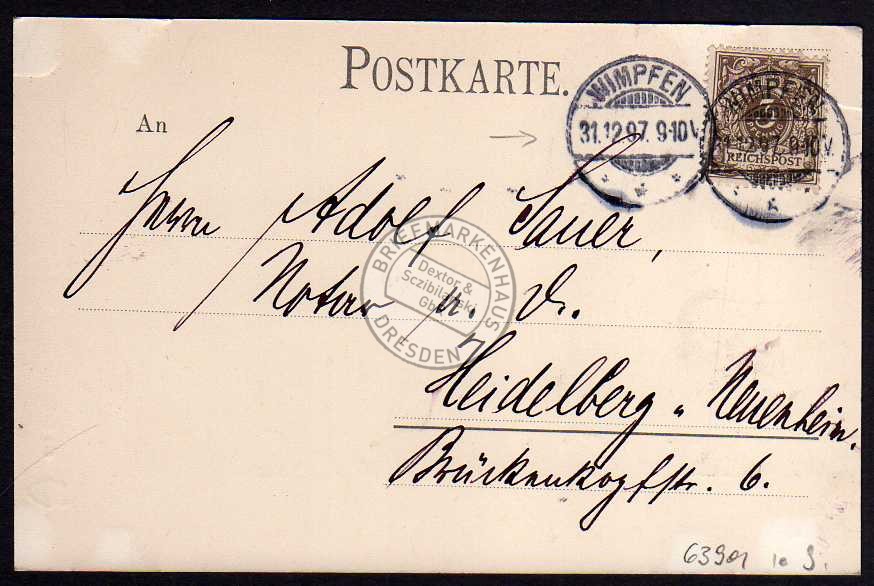 POSTKARTE.
WIMPFEN
31.12.97. 9-10V.
WIMPFEN
31.12.97. 9-10V.
5
REICHSPOST
An
Herrn Adolf Sauer,
Notar a. D.
Heidelberg „ Neuenheim.
Brückenkopfstr. 6.
BRIEFMARKENHAUS
Dextor &
Sczibilanski
GbR
DRESDEN